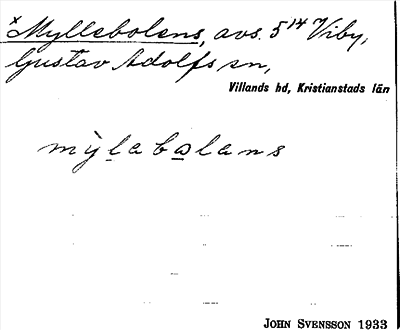 x Myllebolens, avs. 5¹⁴ Viby,
Gustav Adolfs sn,
Villands hd, Kristianstads län
mỳlabalans
JOHN SVENSSON 1933